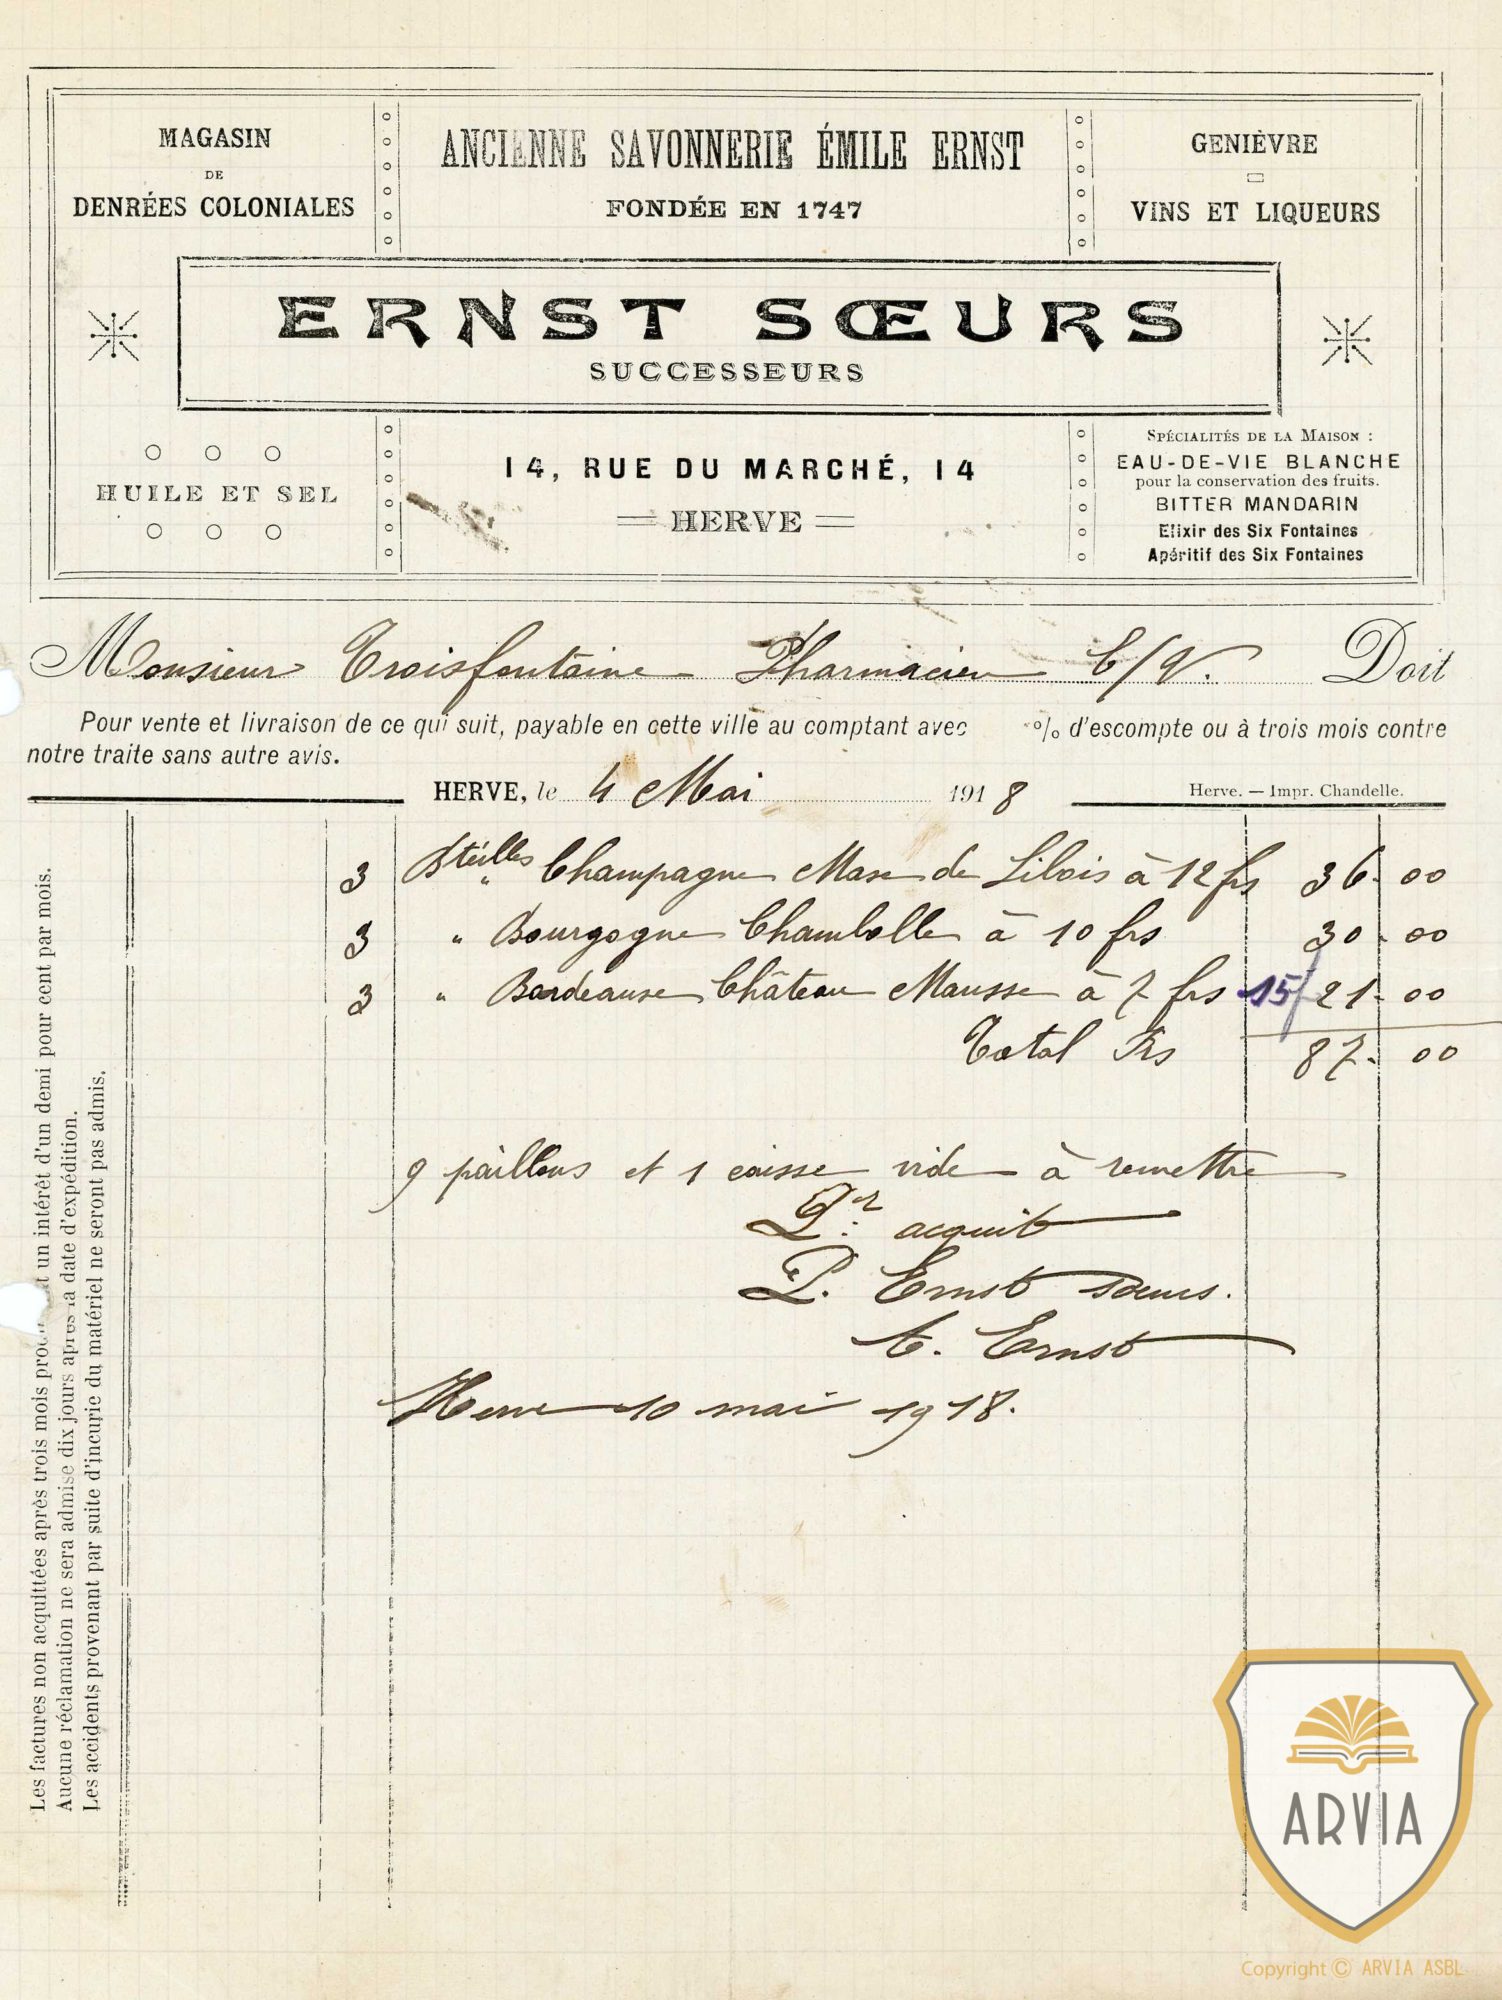 MAGASIN
DE
DENRÉES COLONIALES
ANCIENNE SAVONNERIE ÉMILE ERNST
FONDÉE EN 1747
GENIÈVRE
VINS ET LIQUEURS
ERNST SŒURS
SUCCESSEURS
HUILE ET SEL
14, RUE DU MARCHÉ, 14
HERVE
SPÉCIALITÉS DE LA MAISON :
EAU-DE-VIE BLANCHE
pour la conservation des fruits.
BITTER MANDARIN
Elixir des Six Fontaines
Apéritif des Six Fontaines
Monsieur Troisfontaine Pharmacien E/V. Doit
Pour vente et livraison de ce qui suit, payable en cette ville au comptant avec % d'escompte ou à trois mois contre
notre traite sans autre avis.
HERVE, le 4 Mai 1918
Herve. — Impr. Chandelle.
3 Bteilles Champagne de à 12 frs 36.00
3 " Bourgogne Chambolle à 10 frs 30.00
3 " Bordeaux Château à 7 frs 15/ 21.00
Total Frs 87.00
9 paillons et 1 caisse vide à remettre
Pr. acquit
P. Ernst soeurs.
Ernst
Herve 10 mai 1918.
Les factures non acquittées après trois mois un intérêt d'un demi pour cent par mois.
Aucune réclamation ne sera admise dix jours après la date d'expédition.
Les accidents provenant par suite d'incurie du matériel ne seront pas admis.
ARVIA
Copyright © ARVIA ASBL